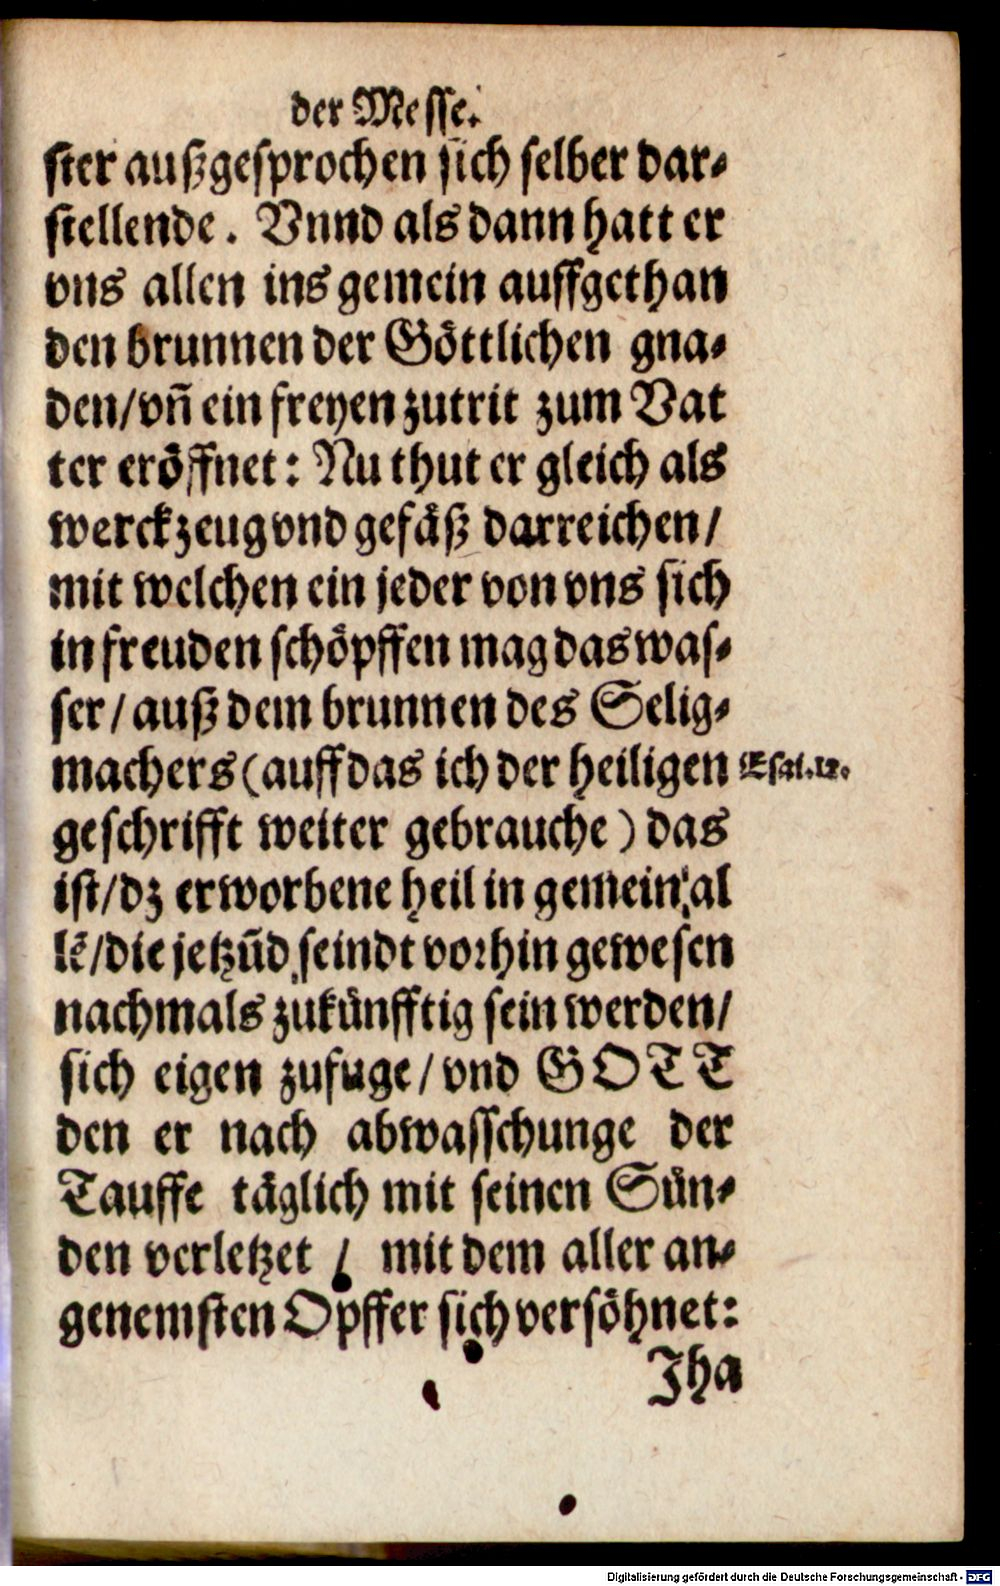 der Messe.
ster außgesprochen sich selber dar-
stellende. Vnnd als dann hatt er
vns allen ins gemein auffgethan
den brunnen der Göttlichen gna-
den/vñ ein freyen zutrit zum Vat
ter eröffnet: Nu thut er gleich als
werckzeug vnd gefäß darreichen/
mit welchen ein jeder von vns sich
in freuden schöpffen mag das was-
ser/auß dem brunnen des Selig-
machers (auff das ich der heiligen Esai.12.
geschrifft weiter gebrauche) das
ist/dz erworbene heil in gemein al
lē/die jetzūd seindt vorhin gewesen
nachmals zukünfftig sein werden/
sich eigen zufuge/vnd GOTT
den er nach abwasschunge der
Tauffe täglich mit seinen Sün-
den verletzet / mit dem aller an-
genemsten Opffer sich versöhnet:
Jha
Digitalisierung gefördert durch die Deutsche Forschungsgemeinschaft - DFG